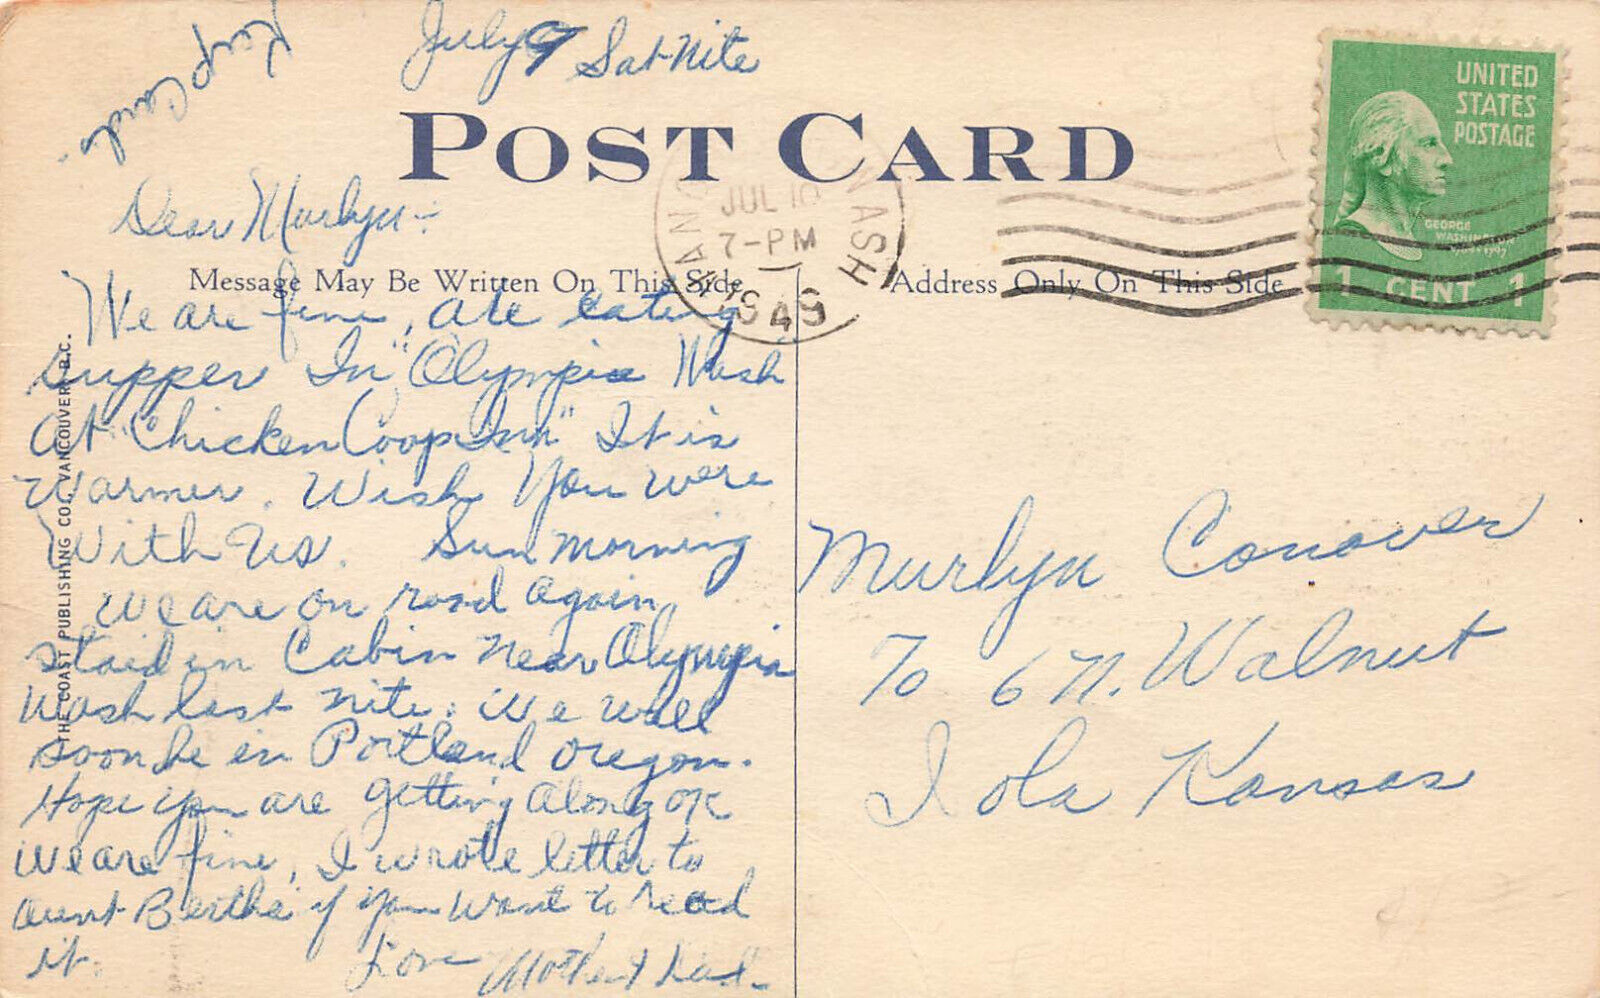 Keep Cards.
July 9 Sat Nite
POST CARD
Dear Murlyn:
Message May Be Written On This Side
Address Only On This Side
We are fine, are eating
supper In "Olympia Wash
At "Chicken Coop Inn" It is
Warmer. Wish You were
With Us. Sun morning
we are on road again
staid in Cabin near Olympia
Wash last nite. We will
soon be in Portland Oregon.
Hope you are getting along OK
We are fine, I wrote letter to
Aunt Bertha if you want to read
it.
Love Mother & Dad.
THE COAST PUBLISHING CO., VANCOUVER, B.C.
JUL 10
7-PM
1949
WASH
UNITED
STATES
POSTAGE
GEORGE
WASHINGTON
1 CENT 1
Murlyn Conover
706 N. Walnut
Iola Kansas